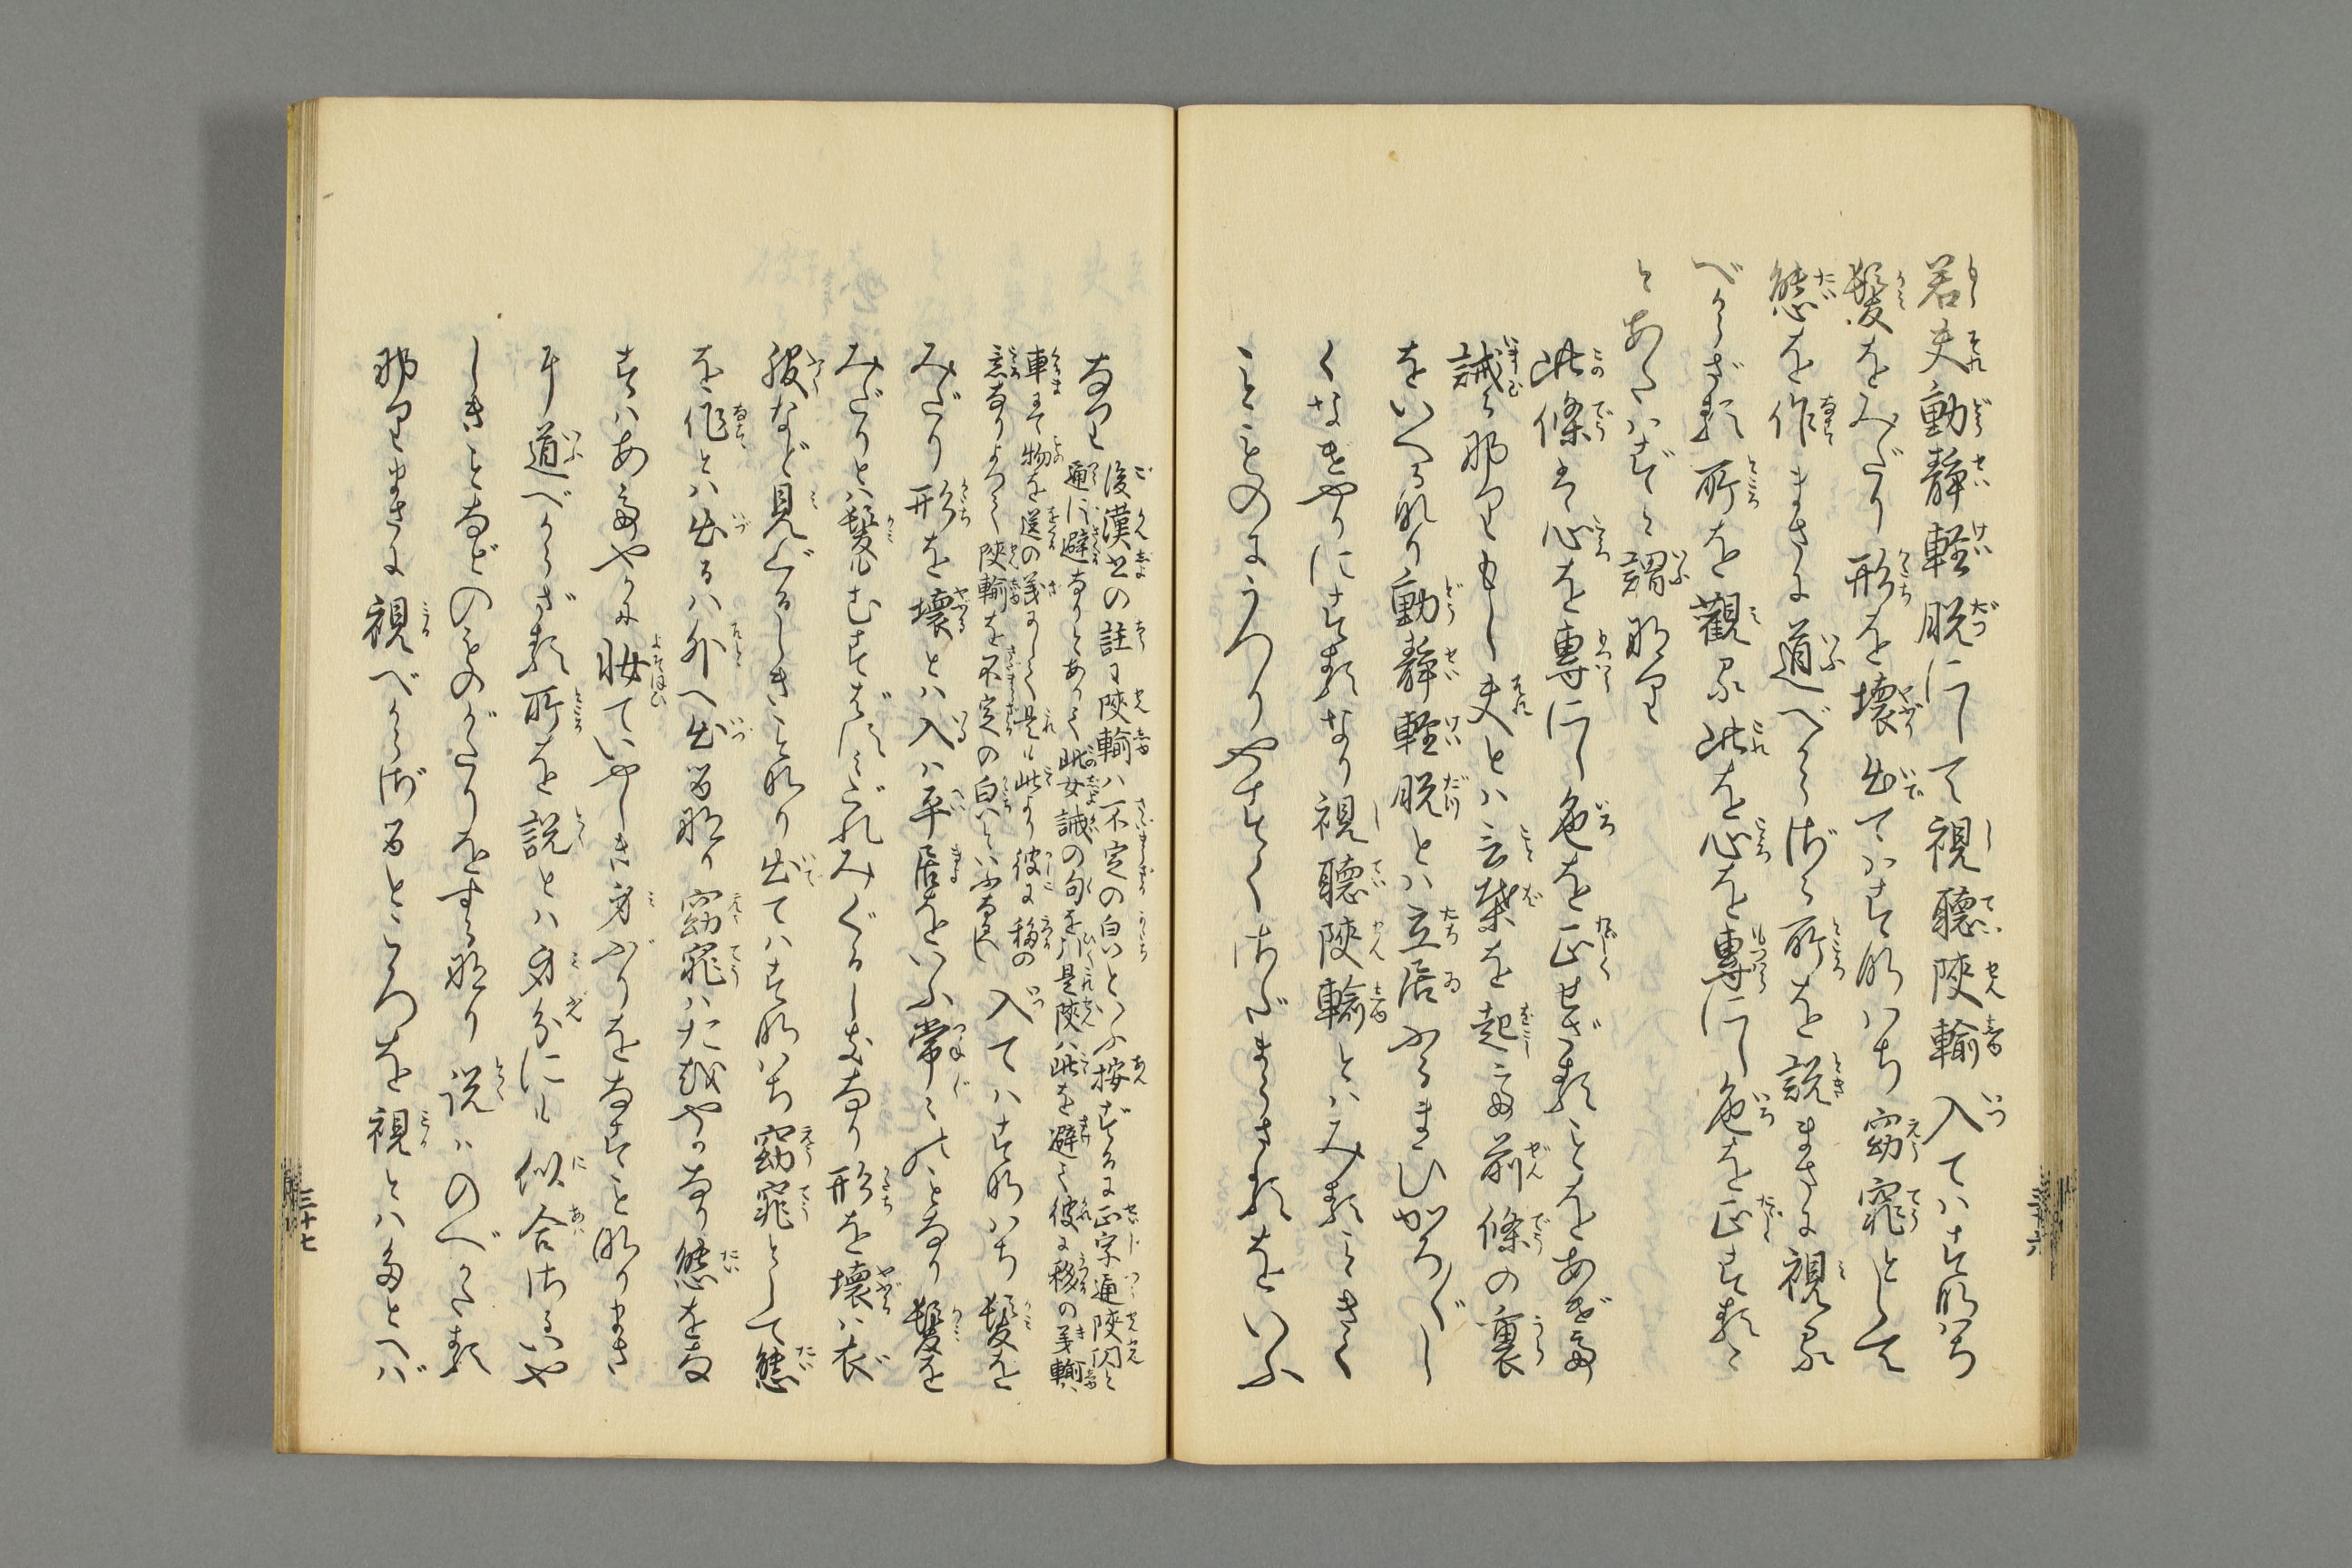 若夫動静軽脱にして視聴陝輸入てハすなハち
髪をみだり形を壊出てハすなハち窈窕として
態を作まさに道べからざる所を説まさに視る
べからざる所を觀る此を心を専にし色を正する
とあたハずと謂なり
此條は心を専にし色を正せざることをあげて
誡るなりもし夫とハ言葉を起こて前條の裏
をいへるなり動静軽脱とハ立居ふるまひかろ〴〵し
くなぎやかにするなり視聴陝輸とハみるきく
ことものにうつりやすくさだまらざるをいふ
なり
後漢书の註に陝輸ハ不定の皃といふ按ずるに正字通陝閃と
通じ避なりとありて此女誡の句を引是陝ハ此を避て彼に移の義輸ハ
車にて物を送の義にして是も此より彼に移の
意なりよつて陝輸を不定の皃といふなるべし
入てハすなハち髪を
みだり形を壊とハ入ハ平居をいふ常〻のことなり髪を
みだりとハ髪もむすばずみだれみぐるしきなり形を壊ハ衣
服など見ぐるしきことなり出てハすなハち窈窕として態
を作とハ出るハ外へ出るなり窈窕ハたをやかなり態をな
すハあでやかに妝ていやしき身ぶりをなすことなりまさ
に道べからざる所を説とハ身分にも似合ざるいや
しきことなどのものがたりをする也説ハのべかたる
なりまさに視べからざるところを視とハたとへバ
三十六
三十七